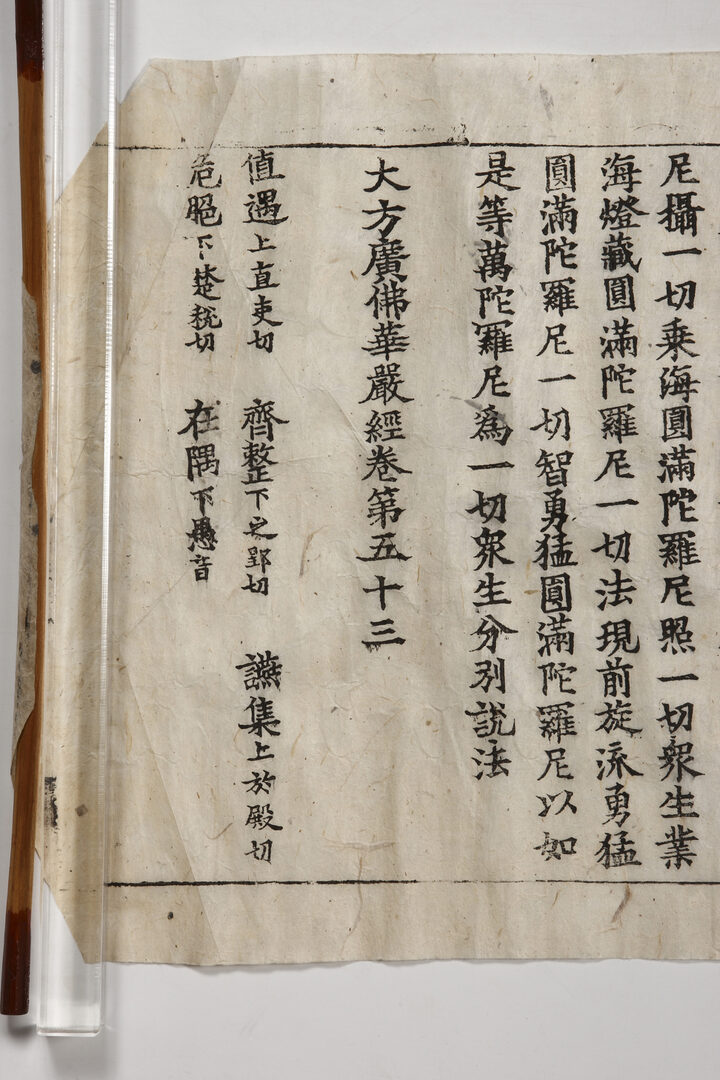 尼攝一切乘海圓滿陀羅尼照一切衆生業
海燈藏圓滿陀羅尼一切法現前旋流勇猛
圓滿陀羅尼一切智勇猛圓滿陀羅尼以如
是等萬陀羅尼爲一切衆生分別說法
大方廣佛華嚴經卷第五十三
値遇上直吏切 齊整下之郢切 讌集上於殿切
危脃下楚稅切 在隅下愚音